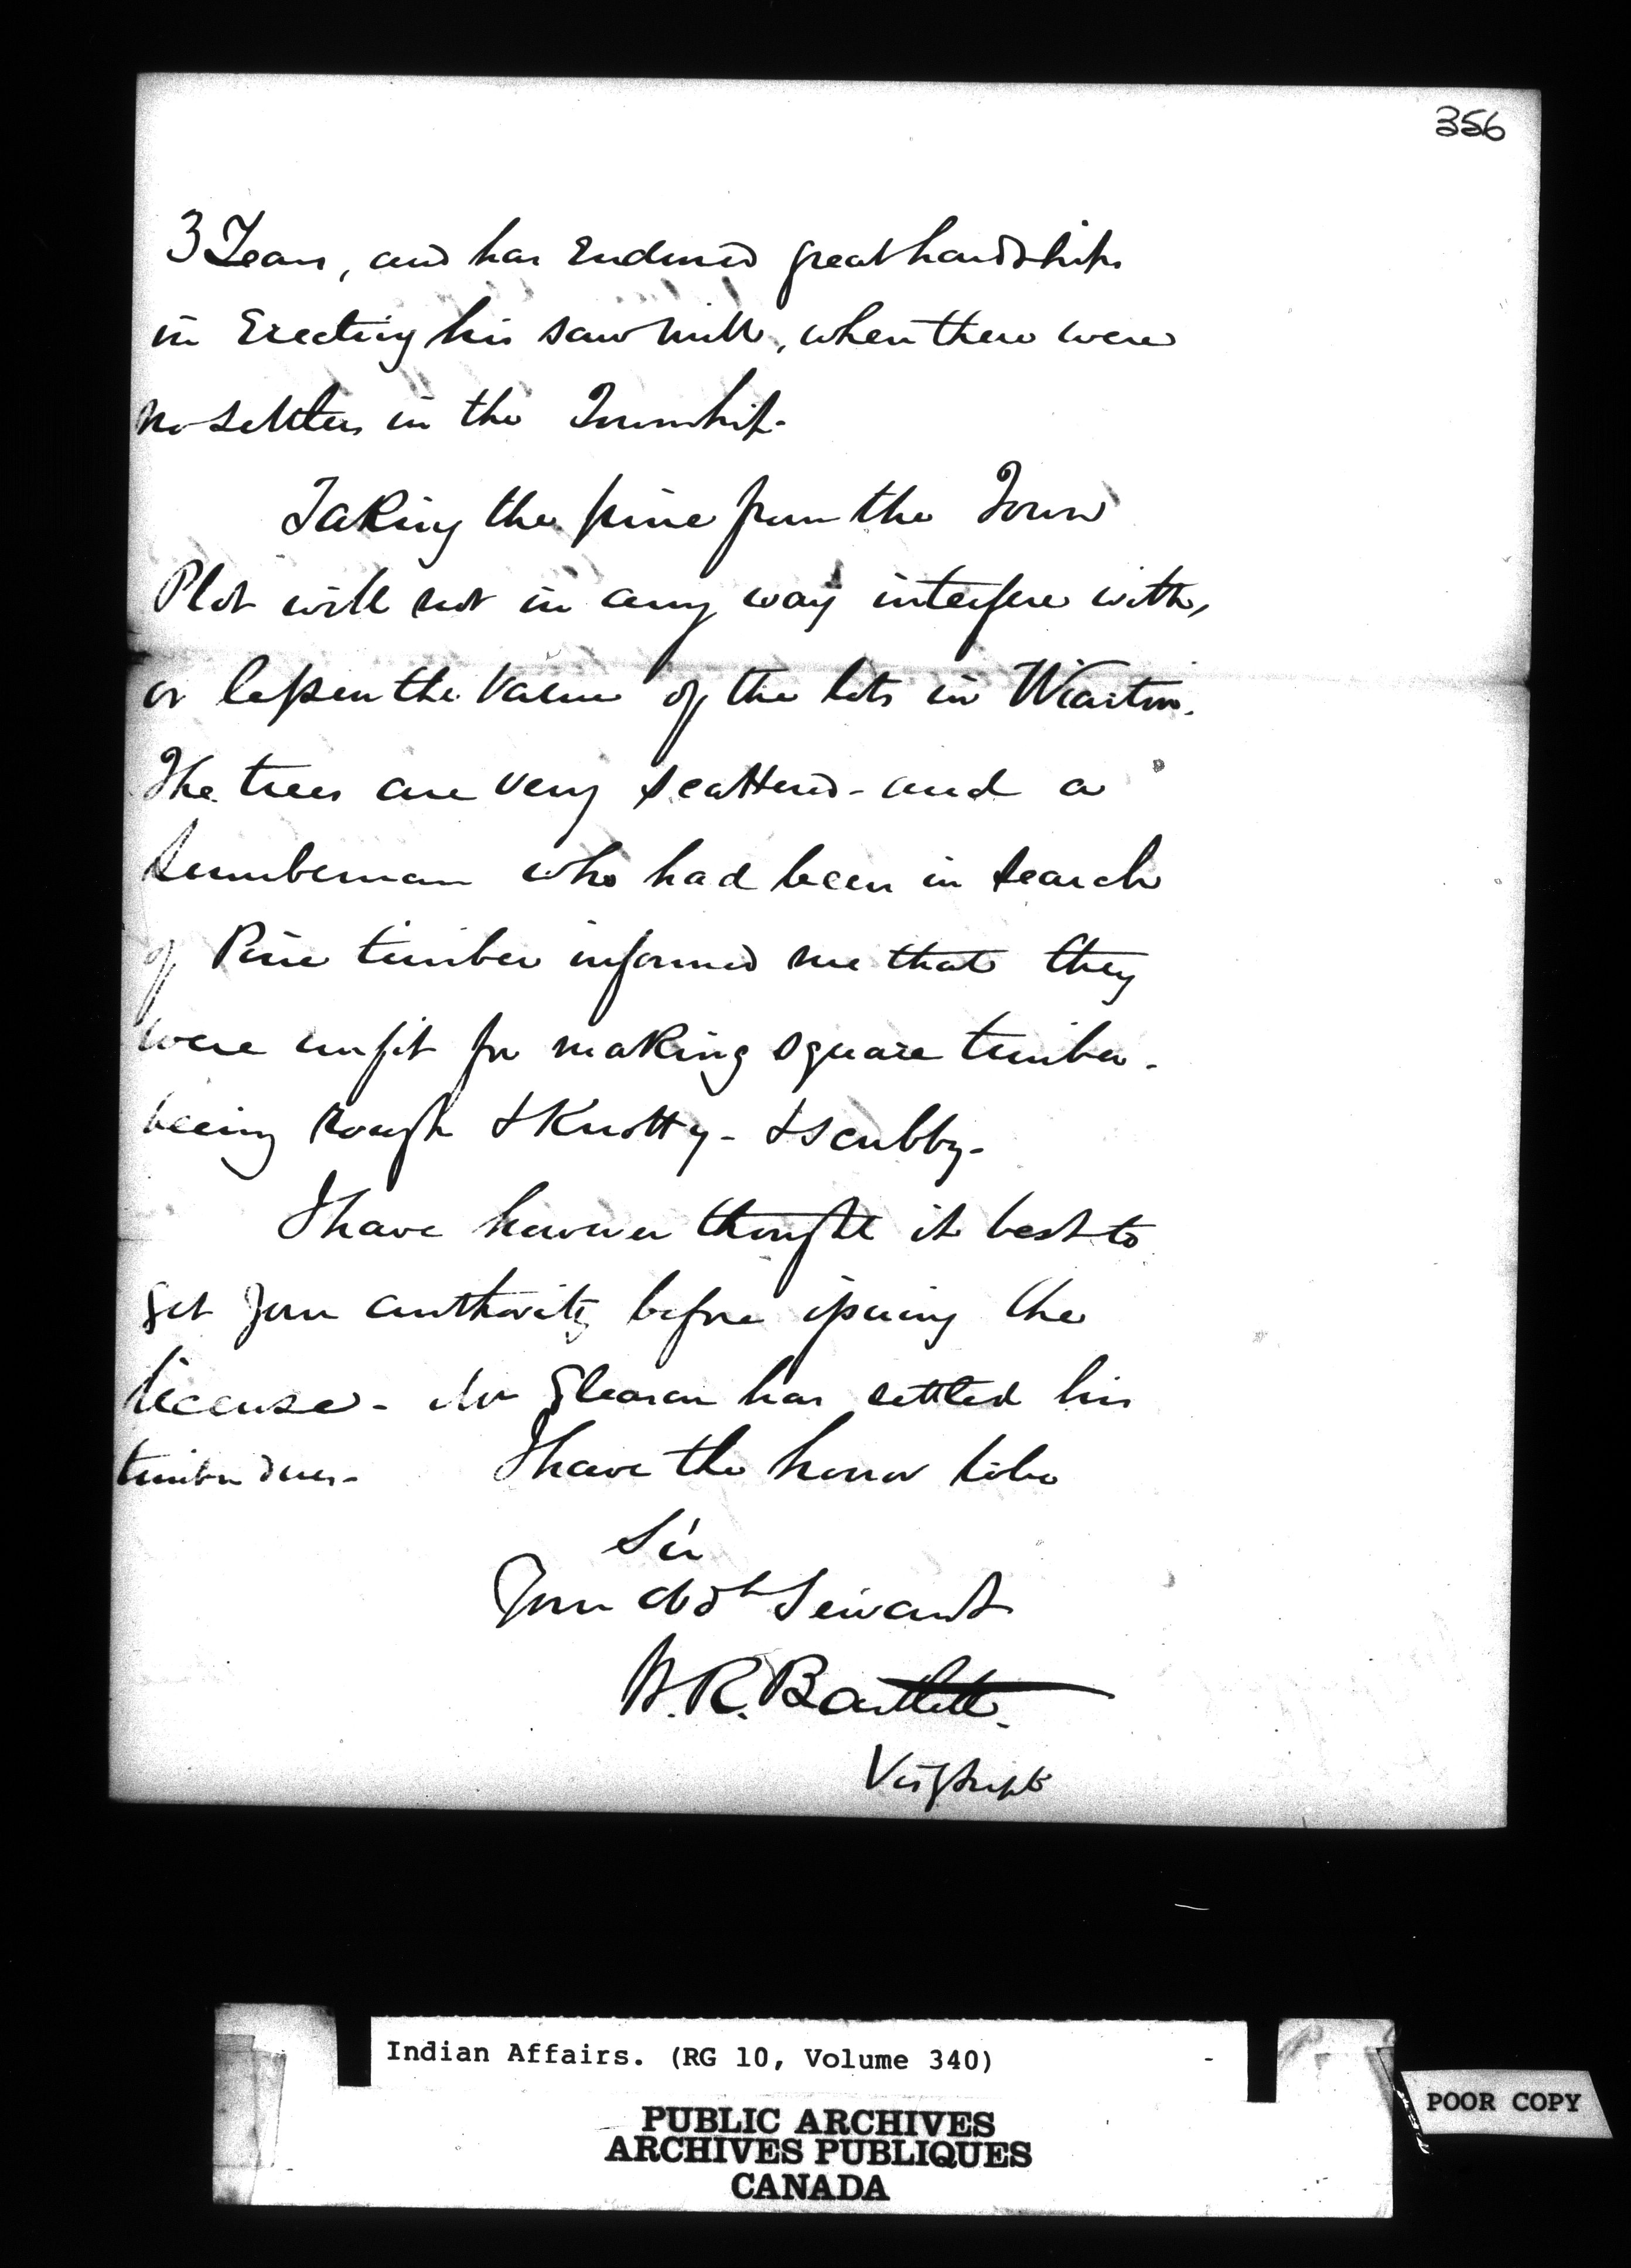 356
3 Years, and has Endured great hardships
in Erecting his saw mill, when there were
no settlers in the Township.
Taking the pine from the Town
Plot will not in any way interfere with,
or lessen the value of the lots in Wiarton.
The trees are very scattered - and a
Lumberman who had been in search
of Pine timber informed me that they
were unfit for making square timber -
being rough & Knotty - & scrubby -
I have however thought it best to
get your authority before issuing the
license - Mr Gleason has settled his
timber dues - I have the honor to be
Sir
Your Obdt Servant
W. R. Bartlett.
Vis. Supt
Indian Affairs. (RG 10, Volume 340) -
PUBLIC ARCHIVES
ARCHIVES PUBLIQUES
CANADA
POOR COPY